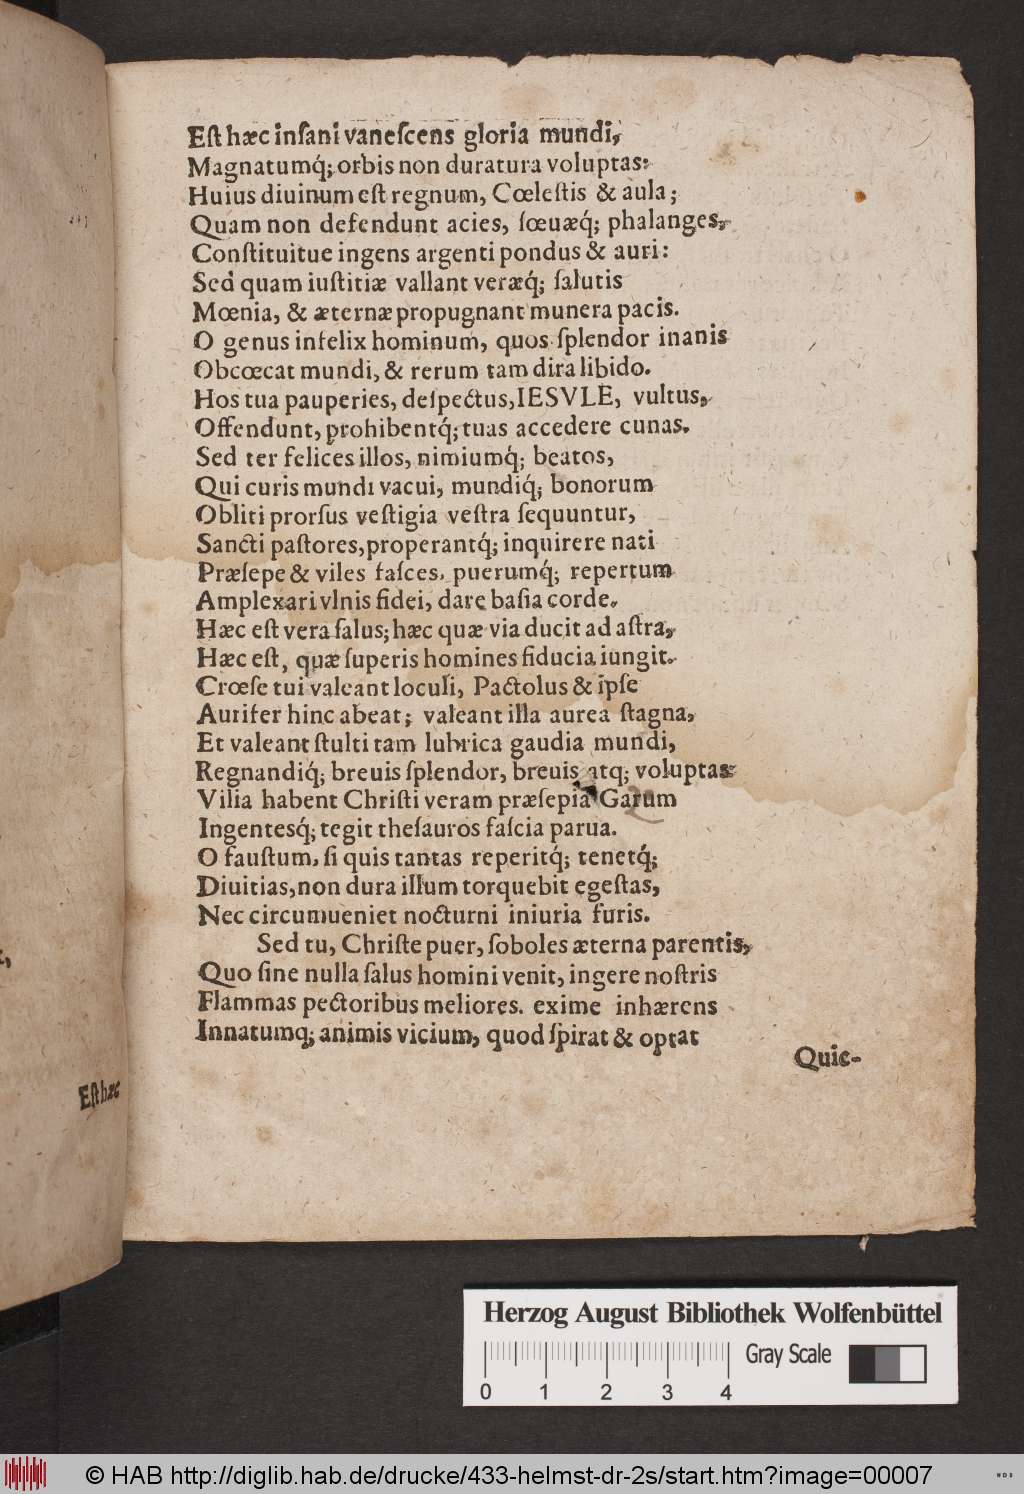 Eſt hæc inſani vaneſcens gloria mundi,
Magnatumq́; orbis non duratura voluptas:
Huius diuinum eſt regnum, Cœleſtis & aula;
Quam non defendunt acies, ſœuæq́; phalanges,
Conſtituitue ingens argenti pondus & auri:
Sed quam iuſtitiæ vallant veræq́; ſalutis
Mœnia, & æternæ propugnant munera pacis.
O genus infelix hominum, quos ſplendor inanis
Obcœcat mundi, & rerum tam dira libido.
Hos tua pauperies, deſpectus, IESVLE, vultus,
Offendunt, prohibentq́; tuas accedere cunas.
Sed ter felices illos, nimiumq́; beatos,
Qui curis mundi vacui, mundiq́; bonorum
Obliti prorſus veſtigia veſtra ſequuntur,
Sancti paſtores, properantq́; inquirere nati
Præſepe & viles faſces, puerumq́; repertum
Amplexari vlnis fidei, dare baſia corde.
Hæc eſt vera ſalus; hæc quæ via ducit ad aſtra,
Hæc eſt, quæ ſuperis homines fiducia iungit.
Crœſe tui valeant loculi, Pactolus & ipſe
Aurifer hinc abeat; valeant illa aurea ſtagna,
Et valeant ſtulti tam lubrica gaudia mundi,
Regnandiq́; breuis ſplendor, breuis atq; voluptas:
Vilia habent Chriſti veram præſepia Garum
Ingentesq́; tegit theſauros faſcia parua.
O fauſtum, ſi quis tantas reperitq́; tenetq́;
Diuitias, non dura illum torquebit egeſtas,
Nec circumueniet nocturni iniuria furis.
Sed tu, Chriſte puer, ſoboles æterna parentis,
Quo ſine nulla ſalus homini venit, ingere noſtris
Flammas pectoribus meliores. exime inhærens
Innatumq; animis vicium, quod ſpirat & optat
Quic-
Eſt hæc
Herzog August Bibliothek Wolfenbüttel
Gray Scale
0 1 2 3 4
© HAB http://diglib.hab.de/drucke/433-helmst-dr-2s/start.htm?image=00007